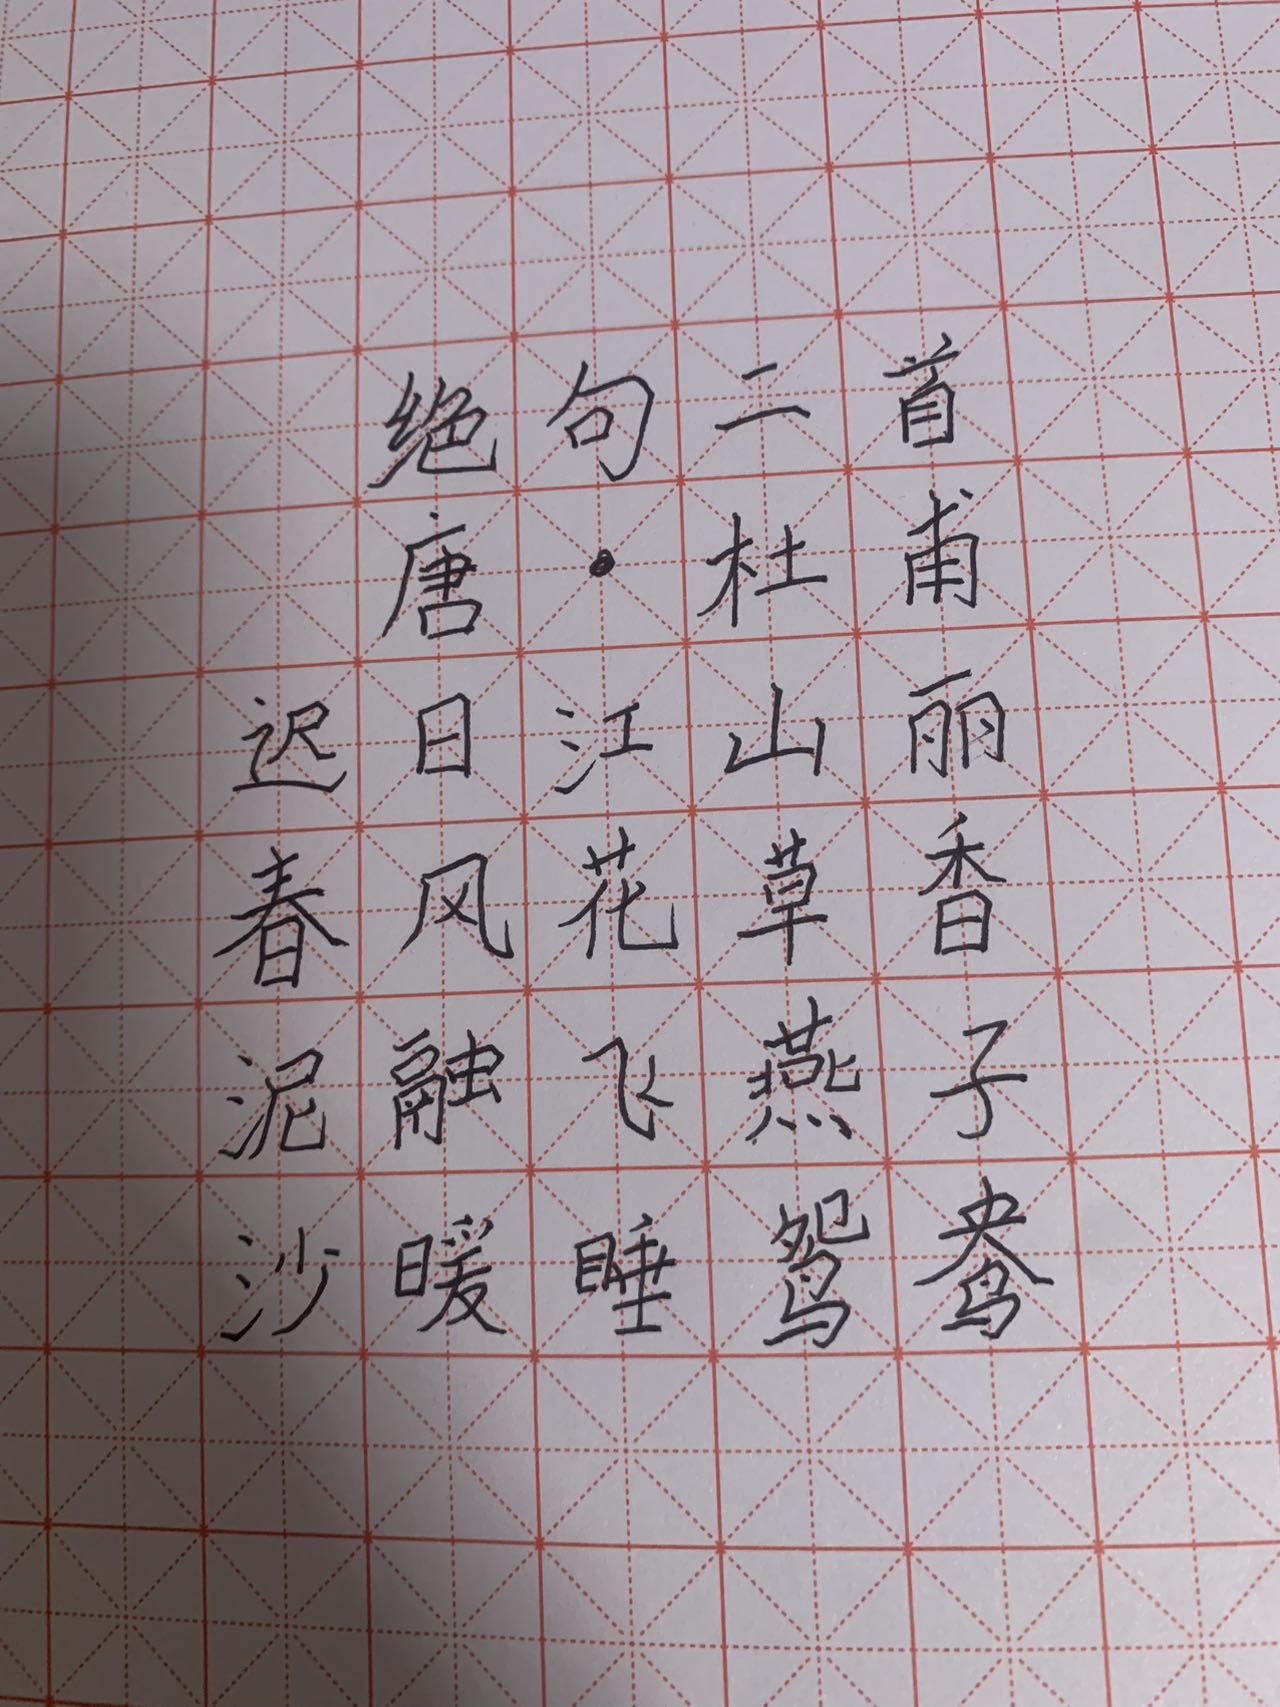 绝句二首
唐·杜甫
迟日江山丽
春风花草香
泥融飞燕子
沙暖睡鸳鸯